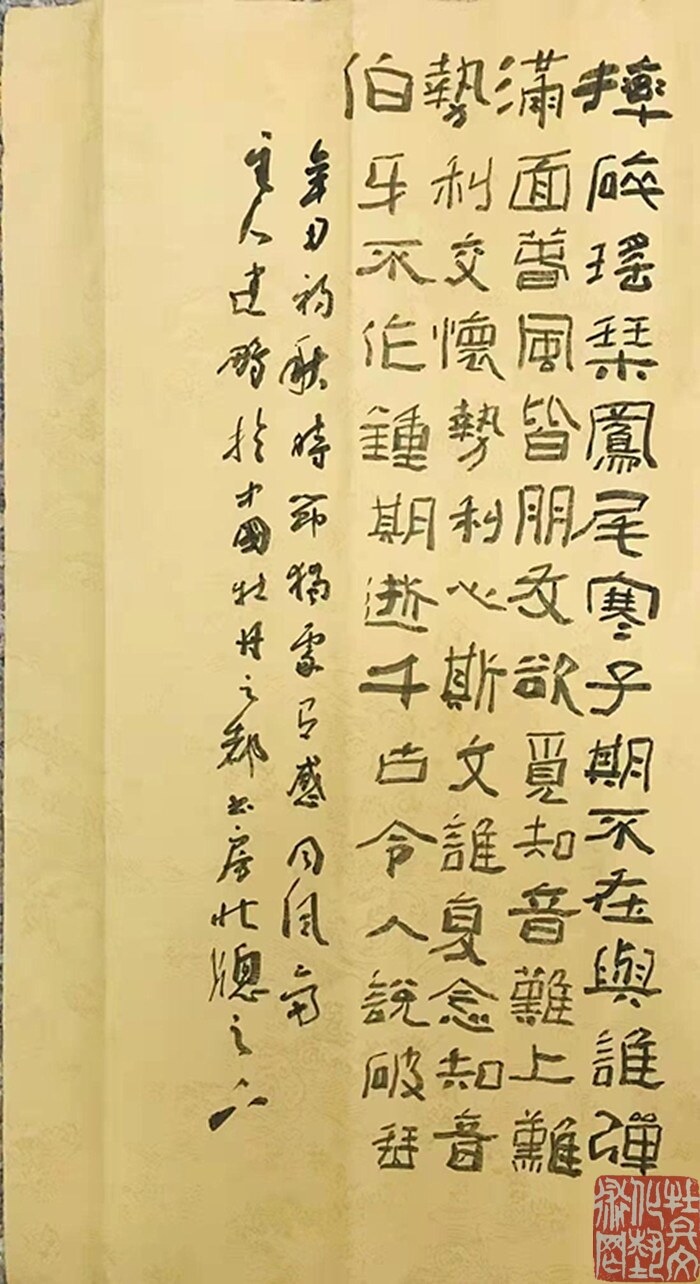 摔碎瑶琴鳳尾寒子期不在與誰彈
滿面春風皆朋友欲覓知音難上難
勢利交懷勢利心斯文誰复念知音
伯牙不作鍾期逝千古令人說破琴
辛丑初秋時節獨處有感同風斋
主人建鵬於中國牡丹之都書房北牕之下